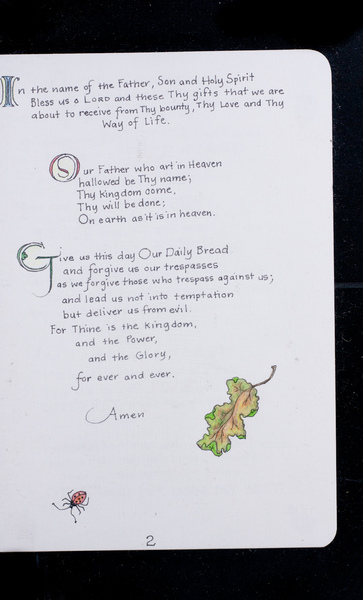 In the name of the Father, Son and Holy Spirit
Bless us o LORD and these Thy gifts that we are
about to receive from Thy bounty, Thy Love and Thy
Way of Life.
Our Father who art in Heaven
hallowed be Thy name;
Thy Kingdom come,
Thy will be done;
On earth as it is in heaven.
Give us this day Our Daily Bread
and forgive us our trespasses
as we forgive those who trespass against us;
and lead us not into temptation
but deliver us from evil.
For Thine is the Kingdom,
and the Power,
and the Glory,
for ever and ever.
Amen
2